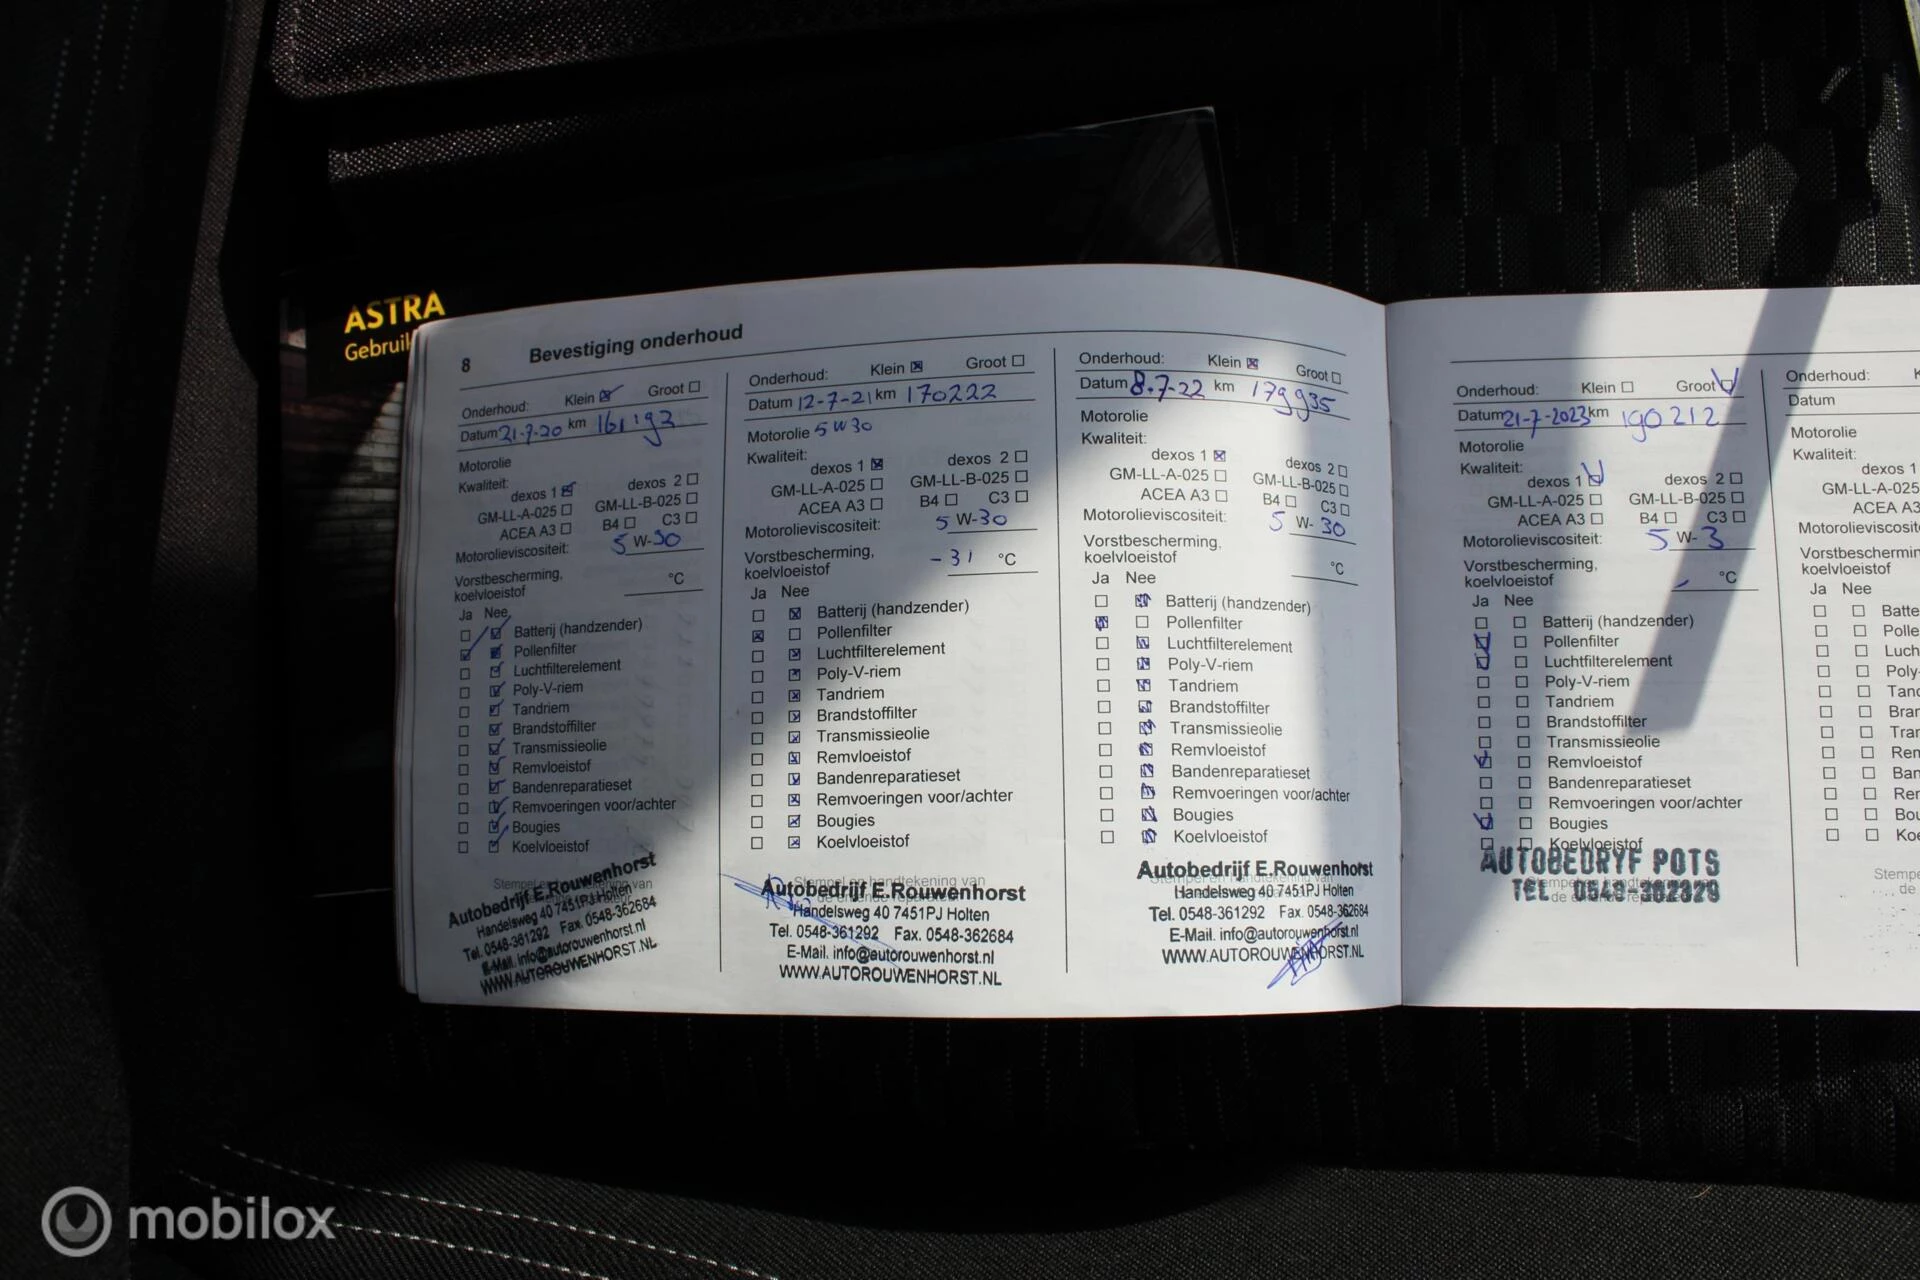 ASTRA
Gebruik
8 Bevestiging onderhoud
Onderhoud: Klein Groot
Datum 21-7-20 km 161193
Motorolie
Kwaliteit:
dexos 1 dexos 2
GM-LL-A-025 GM-LL-B-025
ACEA A3 B4 C3
Motorolieviscositeit: 5 W-30
Vorstbescherming,
koelvloeistof °C
Ja Nee
Batterij (handzender)
Pollenfilter
Luchtfilterelement
Poly-V-riem
Tandriem
Brandstoffilter
Transmissieolie
Remvloeistof
Bandenreparatieset
Remvoeringen voor/achter
Bougies
Koelvloeistof
Autobedrijf E.Rouwenhorst
Handelsweg 40 7451PJ Holten
Tel. 0548-361292 Fax. 0548-362684
E-Mail. info@autorouwenhorst.nl
WWW.AUTOROUWENHORST.NL
Onderhoud: Klein Groot
Datum 12-7-21 km 170222
Motorolie 5W30
Kwaliteit:
dexos 1 dexos 2
GM-LL-A-025 GM-LL-B-025
ACEA A3 B4 C3
Motorolieviscositeit: 5 W-30
Vorstbescherming,
koelvloeistof -31 °C
Ja Nee
Batterij (handzender)
Pollenfilter
Luchtfilterelement
Poly-V-riem
Tandriem
Brandstoffilter
Transmissieolie
Remvloeistof
Bandenreparatieset
Remvoeringen voor/achter
Bougies
Koelvloeistof
Stempel en handtekening van
Autobedrijf E.Rouwenhorst
Handelsweg 40 7451PJ Holten
Tel. 0548-361292 Fax. 0548-362684
E-Mail. info@autorouwenhorst.nl
WWW.AUTOROUWENHORST.NL
Onderhoud: Klein Groot
Datum 8.7-22 km 179935
Motorolie
Kwaliteit:
dexos 1 dexos 2
GM-LL-A-025 GM-LL-B-025
ACEA A3 B4 C3
Motorolieviscositeit: 5 W-30
Vorstbescherming,
koelvloeistof °C
Ja Nee
Batterij (handzender)
Pollenfilter
Luchtfilterelement
Poly-V-riem
Tandriem
Brandstoffilter
Transmissieolie
Remvloeistof
Bandenreparatieset
Remvoeringen voor/achter
Bougies
Koelvloeistof
Autobedrijf E.Rouwenhorst
Handelsweg 40 7451PJ Holten
Tel. 0548-361292 Fax. 0548-362684
E-Mail. info@autorouwenhorst.nl
WWW.AUTOROUWENHORST.NL
Onderhoud: Klein Groot
Datum 21-7-2023 km 190212
Motorolie
Kwaliteit:
dexos 1 dexos 2
GM-LL-A-025 GM-LL-B-025
ACEA A3 B4 C3
Motorolieviscositeit: 5 W-3
Vorstbescherming,
koelvloeistof °C
Ja Nee
Batterij (handzender)
Pollenfilter
Luchtfilterelement
Poly-V-riem
Tandriem
Brandstoffilter
Transmissieolie
Remvloeistof
Bandenreparatieset
Remvoeringen voor/achter
Bougies
Koelvloeistof
AUTOBEDRYF POTS
TEL. 0548-362829
Onderhoud: K
Datum
Motorolie
Kwaliteit:
dexos 1
GM-LL-A-025
ACEA A3
Motorolieviscosite
Vorstbeschermin
koelvloeistof
Ja Nee
Batte
Polle
Luch
Poly-
Tand
Bran
Tran
Rem
Ban
Rer
Bou
Koe
Stempe
de
mobilox